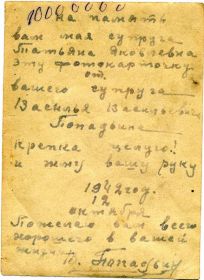 10000000
на память
вам мая супруга
Татьяна Яковлевна
эту фотокарточку
от.
вашего супруга
Василья Васильевич
Попадьина
крепка целую!
и жму вашу руку
1942 год.
12
октября
Пожелаю вам всего
хорошего в вашей
жизни